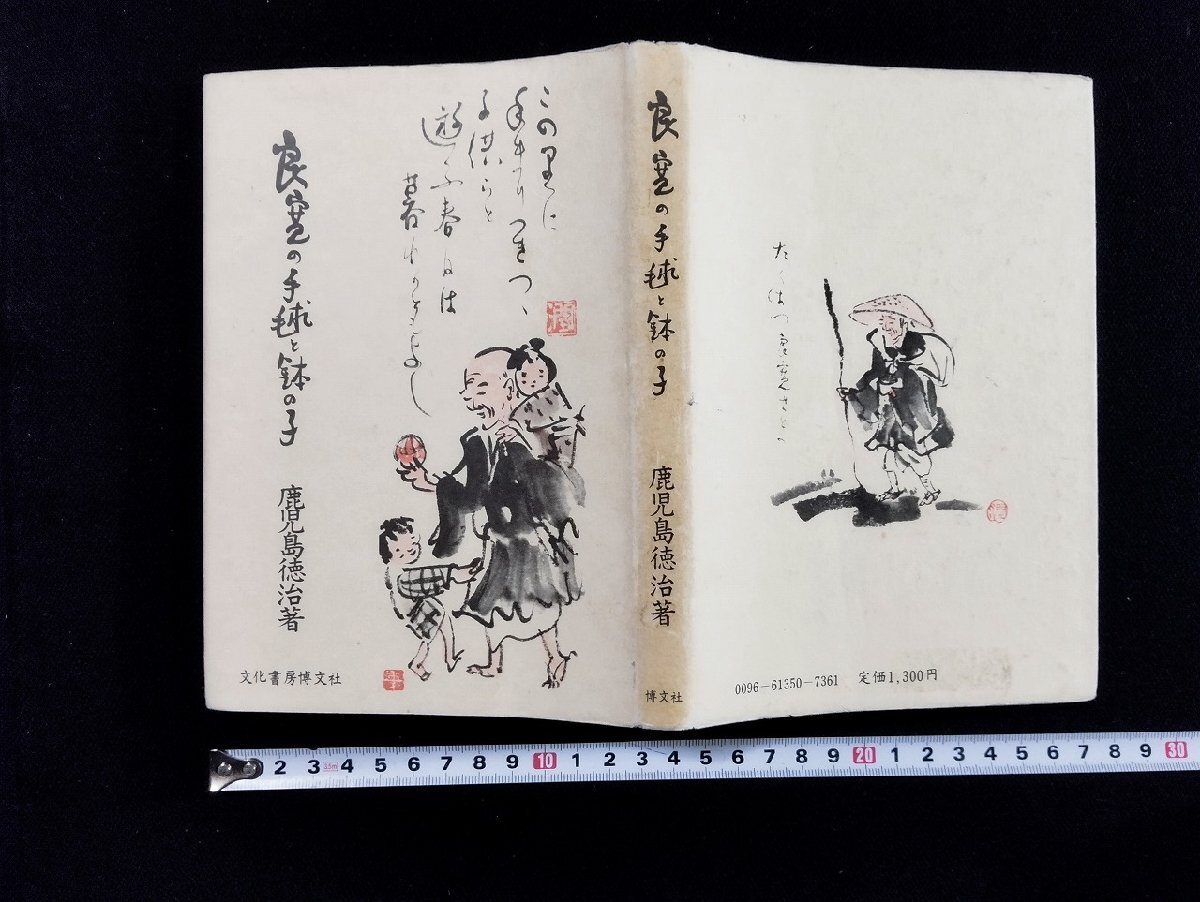 良寛の手毬と鉢の子
鹿児島徳治著
文化書房博文社
この里に
手まりつきつゝ
子供らと
遊ぶ春日は
暮れずともよし
良寛の手毬と鉢の子
鹿児島徳治著
博文社
たくはつの良寛さま
0096-61350-7361 定価1,300円
2 3 3.5m 4 5 6 7 8 9 10 1 2 3 4 5 6 7 8 9 20 1 2 3 4 5 6 7 8 9 30